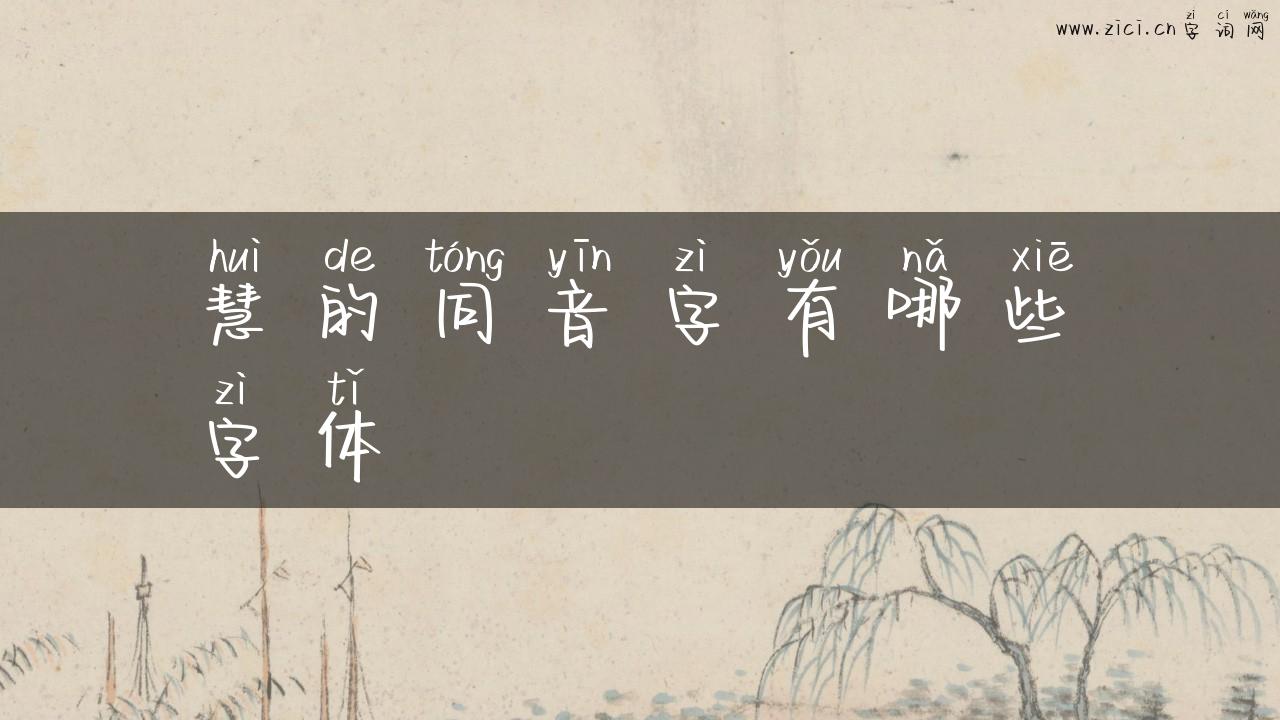 zì cí wǎng
www.zici.cn 字 词 网
huì de tóng yīn zì yǒu nǎ xiē
慧 的 同 音 字 有 哪 些
zì tǐ
字 体